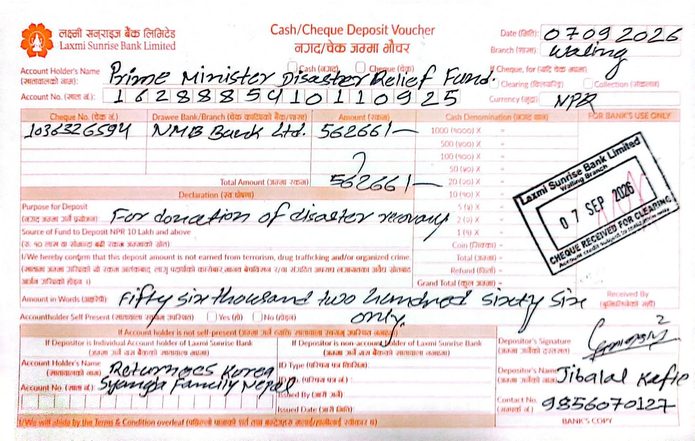 लक्ष्मी सनराइज बैंक लिमिटेड
Laxmi Sunrise Bank Limited
Cash/Cheque Deposit Voucher
नगद/चेक जम्मा भौचर
Date (मिति): 07.09.2026
Branch (शाखा): Waling
Cash (नगद) Cheque (चेक)
If Cheque, for
Clearing Collection
Account Holder's Name Prime Minister Disaster Relief Fund.
Account No. 16288854101110925
Currency NPR
Cheque No. (चेक नं.) Drawee Bank/Branch Amount (रकम) Cash Denomination FOR BANK'S USE ONLY
1036326594 NMB Bank Ltd. 562661—
1000 (१०००) X
500 (५००) X
100 (१००) X
50 (५०) X
Total Amount (जम्मा रकम) 562661—
20 (२०) X
10 (१०) X
Declaration
5 (५) X
2 (२) X
1 (१) X
Purpose for Deposit For donation of disaster recovary
Source of Fund to Deposit NPR 10 Lakh and above
Coin (सिक्का)
I/We hereby confirm that this deposit amount is not earned from terrorism, drug trafficking and/or organized crime.
Total (जम्मा)
Refund (फिर्ता)
Grand Total (कुल जम्मा)
Laxmi Sunrise Bank Limited
Waling Branch
07 SEP 2026
CHEQUE RECEIVED FOR CLEARING
Amount in Words Fifty six thousand two hundred sixty six only.
Received By
Accountholder Self Present Yes (हो) No (होइन)
If Account holder is not self-present
If Depositor is Individual Account holder of Laxmi Sunrise Bank
If Depositor is non-account holder of Laxmi Sunrise Bank
Depositor's Signature
Account Holder's Name Returnees Korea
Syangja Family Nepal
Account No.
ID Type
ID No.
Issued By
Issued Date
Depositor's Name Jibalal Kafle
Contact No. 9856070127
I/We will abide by the Terms & Condition overleaf
BANK'S COPY